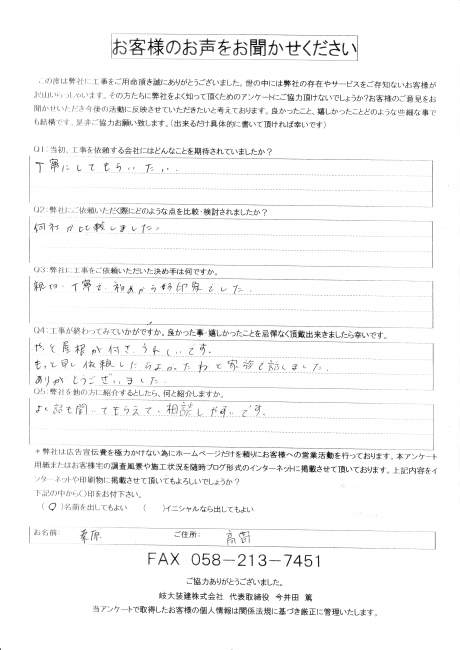 お客様のお声をお聞かせください
この度は弊社に工事をご用命頂き誠にありがとうございました。世の中には弊社の存在やサービスをご存知ないお客様が
沢山いらっしゃいます。その方たちに弊社をよく知って頂くためのアンケートにご協力頂けないでしょうか?お客様のご意見をお
聞かせいただき今後の活動に反映させていただきたいと考えております。良かったこと、嬉しかったことどのような些細な事で
も結構です。是非ご協力お願い致します。(出来るだけ具体的に書いて頂ければ幸いです)
Q1:当初、工事を依頼する会社にはどんなことを期待されていましたか?
丁寧にしてもらいたい.
Q2:弊社にご依頼いただく際にどのような点を比較・検討されましたか?
何社か比較しました。
Q3:弊社に工事をご依頼いただいた決め手は何ですか。
親切・丁寧で、初めから好印象でした.
Q4:工事が終わってみていかがですか。良かった事・嬉しかったことを忌憚なく頂戴出来ましたら幸いです。
やっと屋根が付き、うれしいです.
もっと早く依頼したらよかったねと家族で話しました.
ありがとうございました.
Q5:弊社を他の方に紹介するとしたら、何と紹介しますか。
よく話を聞いてもらえて、相談しやすいです.
*弊社は広告宣伝費を極力かけない為にホームページだけを頼りにお客様への営業活動を行っております。本アンケート
用紙またはお客様宅の調査風景や施工状況を随時ブログ形式のインターネットに掲載させて頂いております。上記内容をイ
ンターネットや印刷物に掲載させて頂いてもよろしいでしょうか?
下記の中から○印をお付下さい。
(○)名前を出してもよい ( )イニシャルなら出してもよい
お名前: 栗原 ご住所:
FAX 058-213-7451
ご協力ありがとうございました。
岐大装建株式会社 代表取締役 今井田 篤
当アンケートで取得したお客様の個人情報は関係法規に基づき厳正に管理いたします。